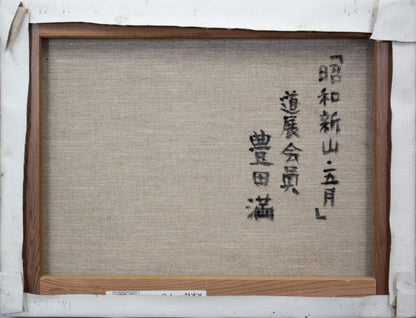 「昭和新山・五月」
道展会員
豊田満